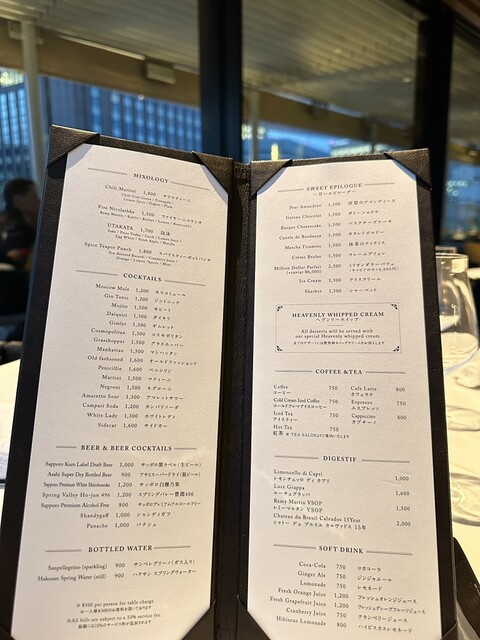 MIXOLOGY
Chili Martini 1,800 チリマティーニ
Fire Nicolashka 1,500 ファイヤーニコラシカ
UTAKATA 1,700 泡沫
Spice Teapot Punch 1,800 スパイスティーポットパンチ
COCKTAILS
Moscow Mule 1,200 モスコミュール
Gin Tonic 1,200 ジントニック
Mojito 1,500 モヒート
Daiquiri 1,500 ダイキリ
Gimlet 1,500 ギムレット
Cosmopolitan 1,500 コスモポリタン
Grasshopper 1,500 グラスホッパー
Manhattan 1,500 マンハッタン
Old fashioned 1,600 オールドファッションド
Penicillin 1,600 ペニシリン
Martini 1,500 マティーニ
Negroni 1,500 ネグローニ
Amaretto Sour 1,300 アマレットサワー
Campari Soda 1,200 カンパリソーダ
White Lady 1,300 ホワイトレディ
Sidecar 1,600 サイドカー
BEER & BEER COCKTAILS
Sapporo Kuro Label Draft Beer 1,000 サッポロ黒ラベル(生ビール)
Asahi Super Dry Bottled Beer 900 アサヒスーパードライ(瓶ビール)
Sapporo Premium White Shirohonoka 1,200 サッポロ白穂乃果
Spring Valley Ho-jun 496 1,200 スプリングバレー豊潤496
Sapporo Premium Alcohol Free 800 サッポロプレミアムアルコールフリー
Shandygaff 1,000 シャンディガフ
Panache 1,000 パナシェ
BOTTLED WATER
Sanpellegrino (sparkling) 900 サンペレグリーノ(ガス入り)
Hakusan Spring Water (still) 900 ハクサン スプリングウォーター
※ ¥500 per person for table charge.
※All bills are subject to a 10% service fee.
SWEET EPILOGUE
Pear Amandine 1,500 洋梨のアマンディーヌ
Gateau Chocolat 1,500 ガトーショコラ
Basque Cheesecake 1,500 バスクチーズケーキ
Catele de Bordeaux 1,500
Matcha Tiramisu 1,500 抹茶のティラミス
Crème Brulee 1,500 クレームブリュレ
Million Dollar Parfait 2,500 ミリオンダラーパフェ
(+caviar ¥6,000)
Ice Cream 1,500 アイスクリーム
Sherbet 1,500 シャーベット
HEAVENLY WHIPPED CREAM
ヘブンリーホイップ
All desserts will be served with
our special Heavenly whipped cream.
COFFEE &TEA
Coffee 750 Cafe Latte 800
コーヒー カフェラテ
Cold Cream Iced Coffee 750 Espresso 750
コールドクレマアイスコーヒー エスプレッソ
Iced Tea 750 Cappuccino 800
アイスティー カプチーノ
Hot Tea 750
紅茶 ※TEA SALONよりご案内いたします
DIGESTIF
Limoncello di Capri 1,000
レモンチェッロ ディ カプリ
Luce Grappa 1,600
ルーチェグラッパ
Remy Martin VSOP 1,500
レミーマルタン VSOP
Chateau du Breuil Calvados 15Year 2,000
シャトー デュ ブルイユ カルヴァドス 15年
SOFT DRINK
Coca-Cola 750 コカコーラ
Ginger Ale 750 ジンジャエール
Lemonade 750 レモネード
Fresh Orange Juice 1,200 フレッシュオレンジジュース
Fresh Grapefruit Juice 1,200 フレッシュグレープフルーツジュース
Cranberry Juice 750 クランベリージュース
Hibiscus Lemonade 800 ハイビスカスレモネード